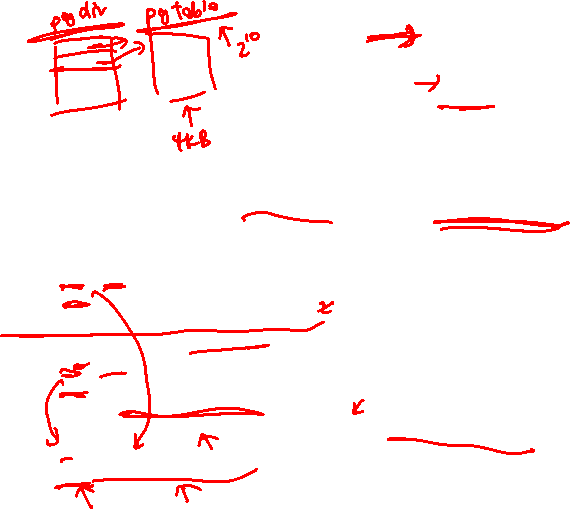 pg dir pg table
2^10
4KB